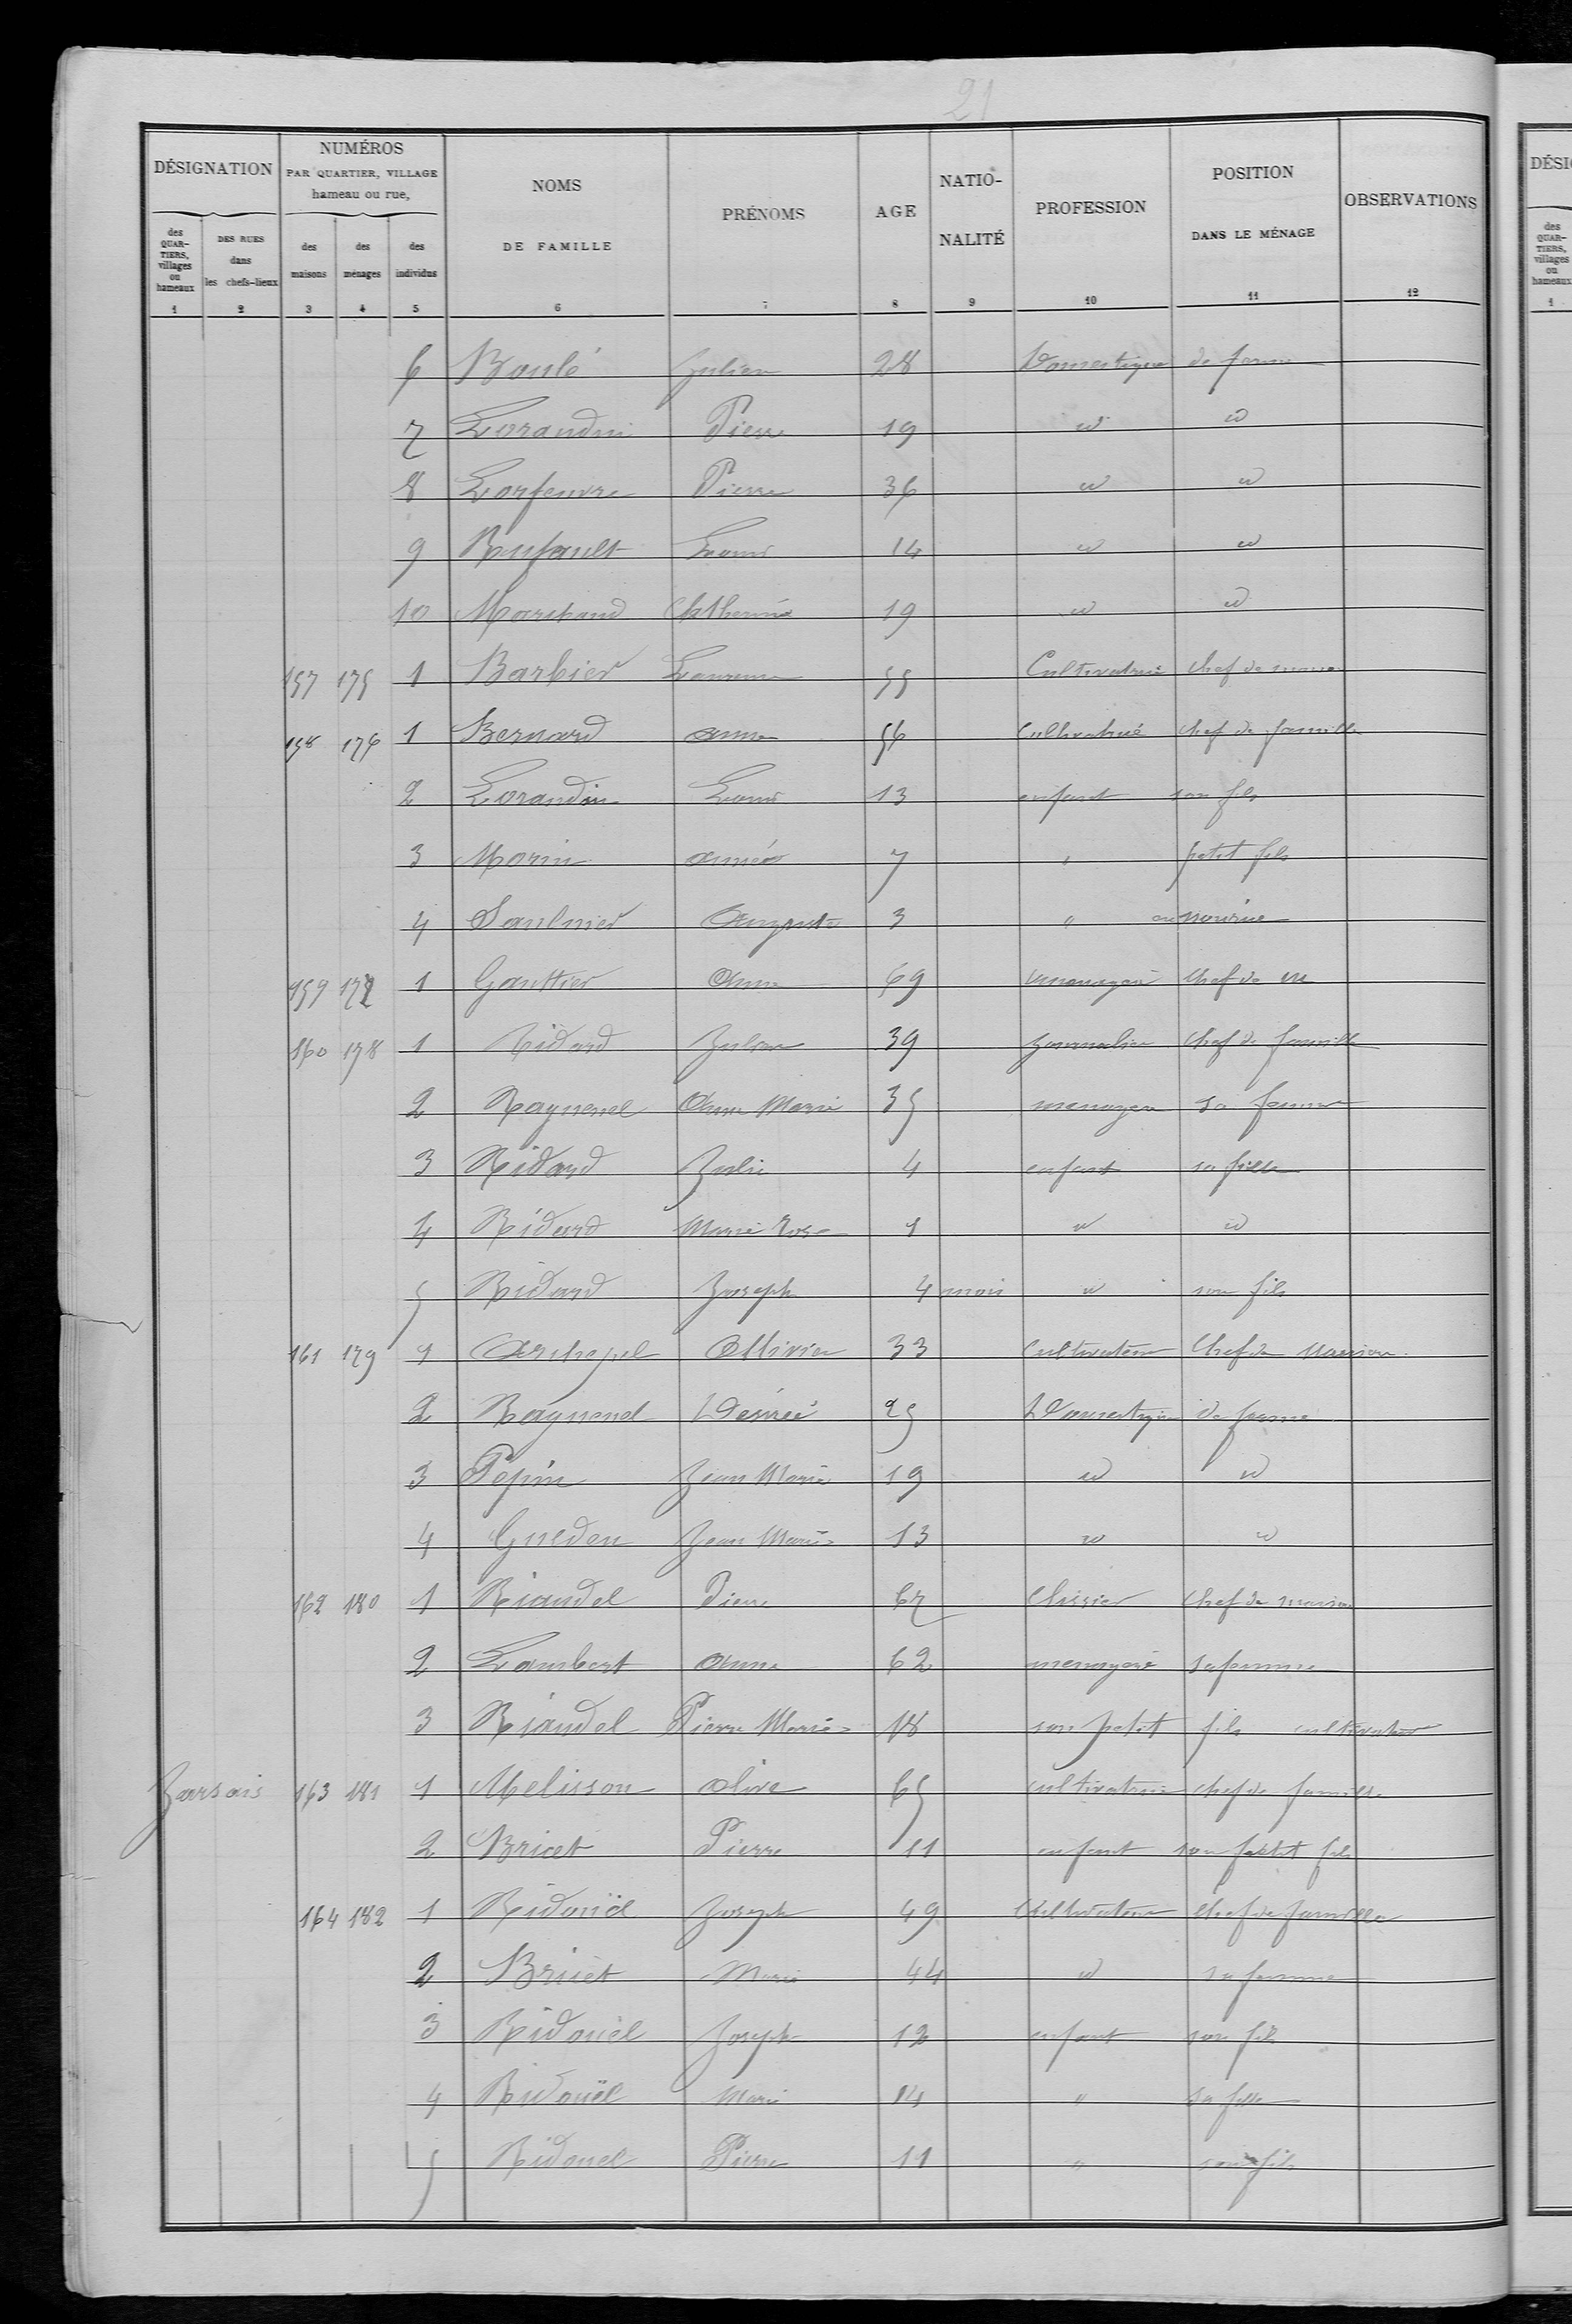 21
DÉSIGNATION NUMÉROS PAR QUARTIER, VILLAGE hameau ou rue, NOMS DE FAMILLE PRÉNOMS AGE NATIO-NALITÉ PROFESSION POSITION DANS LE MÉNAGE OBSERVATIONS
des QUAR-TIERS, villages ou hameaux DES RUES dans les chefs-lieux des maisons des ménages des individus
1 2 3 4 5 6 7 8 9 10 11 12
6 Boulé Julien 28 Domestique de ferme
7 Lorandin Pierre 19 id id
8 Lorfeuvre Pierre 36 id id
9 Rufault Louis 14 id id
10 Marchand Catherine 19 id id
157 175 1 Barbier Laurence 55 Cultivatrice Chef de
158 176 1 Bernard anne 56 Cultivatrice Chef de famille
2 Lorandin Louis 13 enfant son fils
3 Morin aimée 7 " petit fils
4 Saulnier Auguste 3 " en nourrice
159 177 1 Gauttier Anne 69 menagère Chef de
160 178 1 Ridard Julien 39 journalier Chef de famille
2 Ragnenel Anne Marie 35 menagère sa femme
3 Ridard Julie 4 enfant sa fille
4 Ridard Marie Rose 1 id id
5 Ridard Joseph 4 mois id son fils
161 179 1 Ollivier 33 Cultivateur Chef de Maison
2 Ragnenel Désirée 25 Domestique de ferme
3 Pepin Jean Marie 19 id id
4 Guedon Jean Marie 13 id id
162 180 1 Riaudel Pierre 67 Chef de maison
2 Lambert anne 62 menagère sa femme
3 Riaudel Pierre Marie 18 son petit fils cultivateur
Jarsais 163 181 1 Melisson olive 65 cultivatrice chef de famille
2 Bricet Pierre 11 enfant son petit fils
164 182 1 Ridouël Joseph 49 Cultivateur Chef de famille
2 Bricet Marie 44 id sa femme
3 Ridouël Joseph 12 enfant son fils
4 Ridouël Marie 14 " sa fille
5 Ridouel Pierre 11 " son fils
DÉSI
des QUAR-TIERS, villages ou hameaux
1